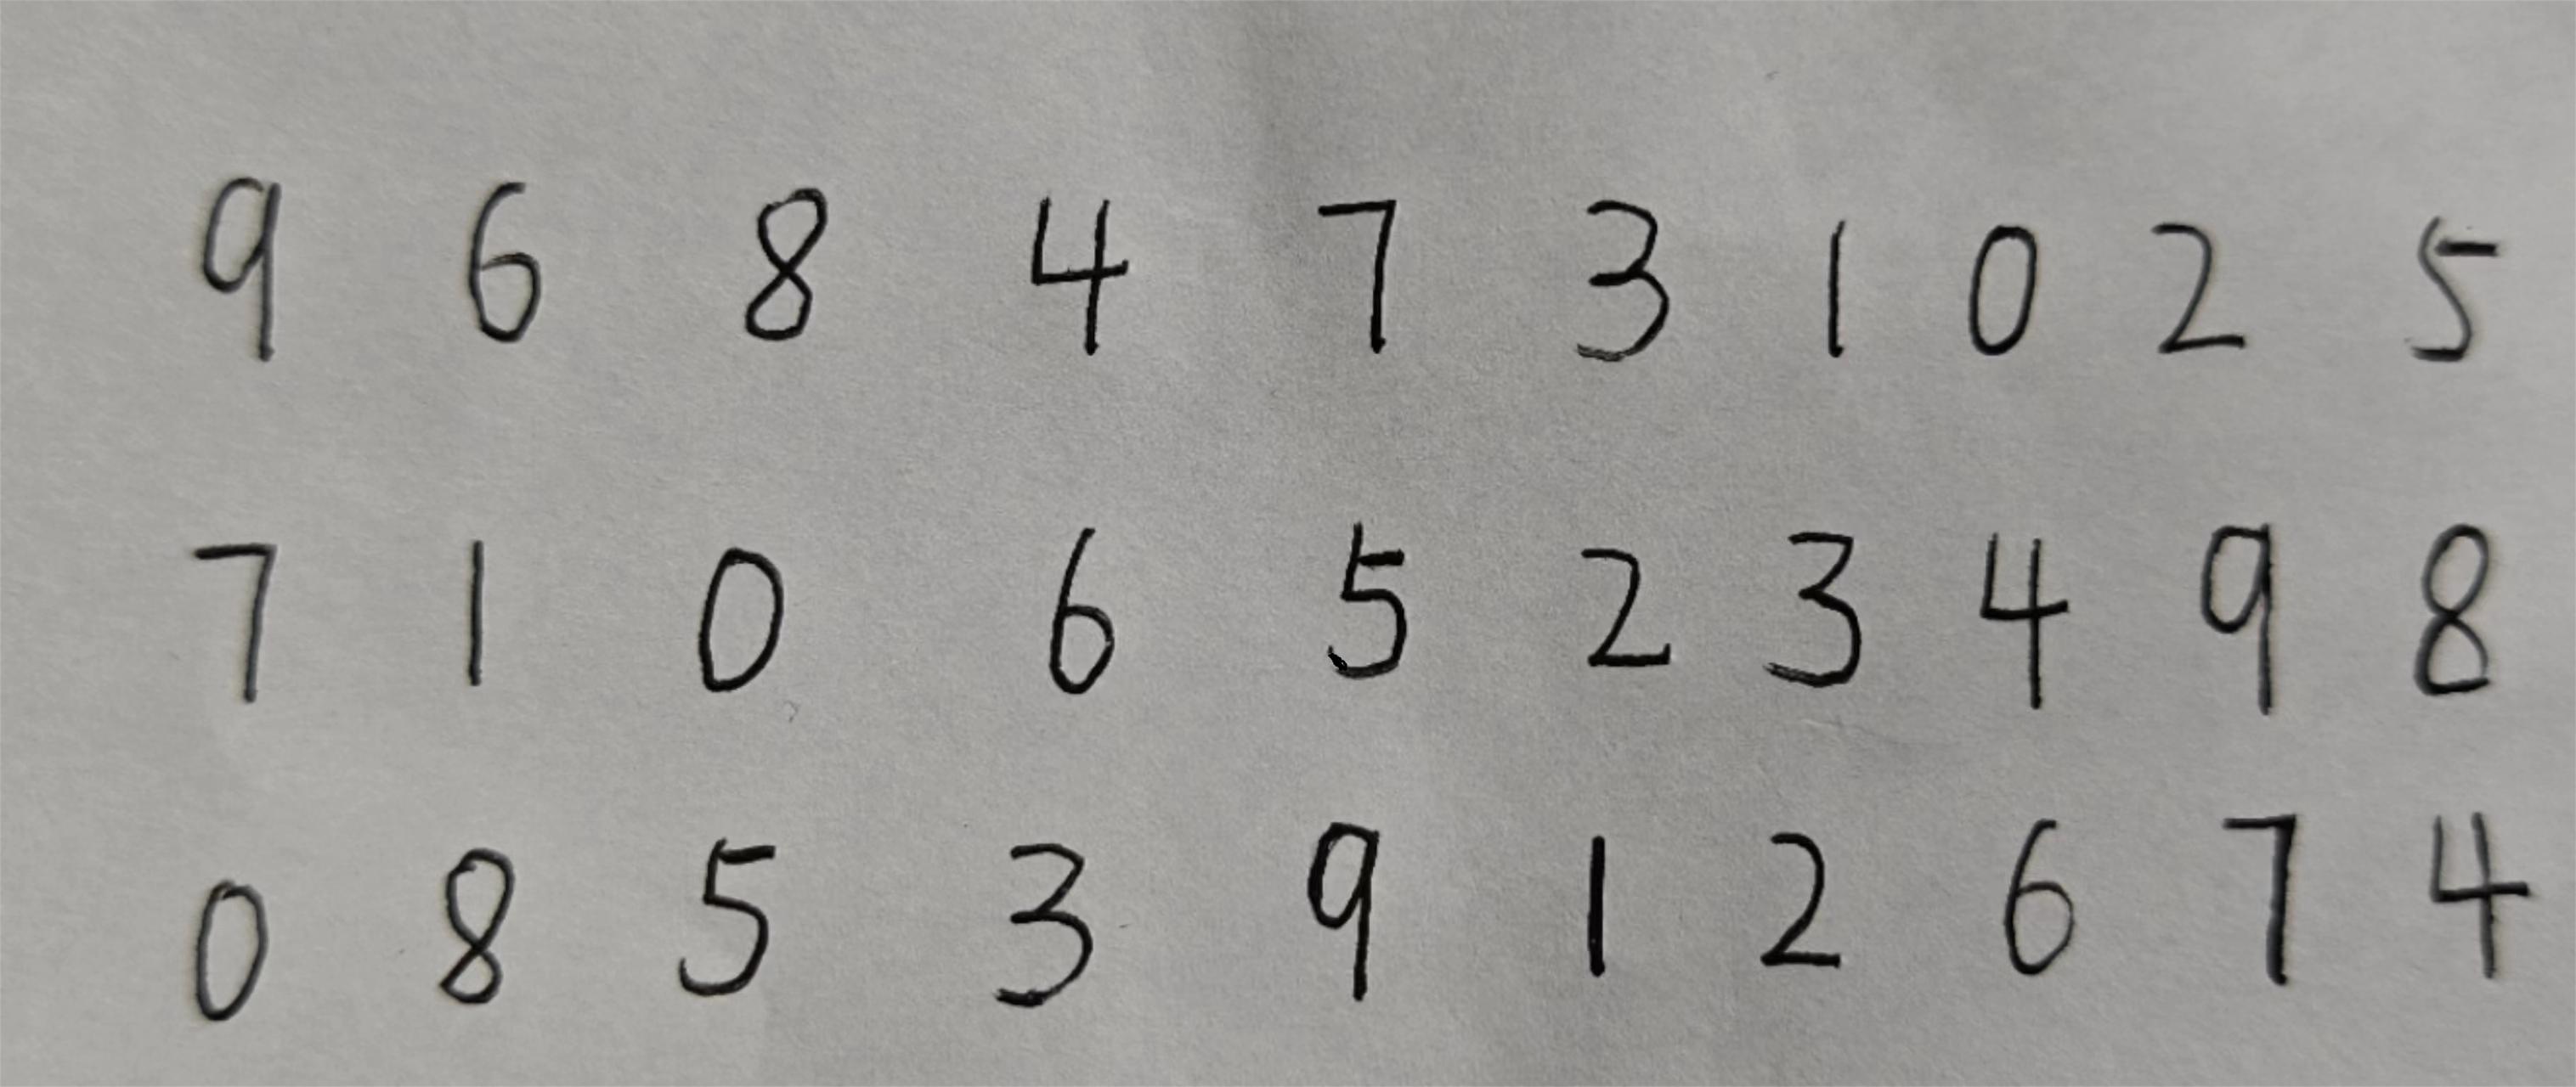 9 6 8 4 7 3 1 0 2 5
7 1 0 6 5 2 3 4 9 8
0 8 5 3 9 1 2 6 7 4